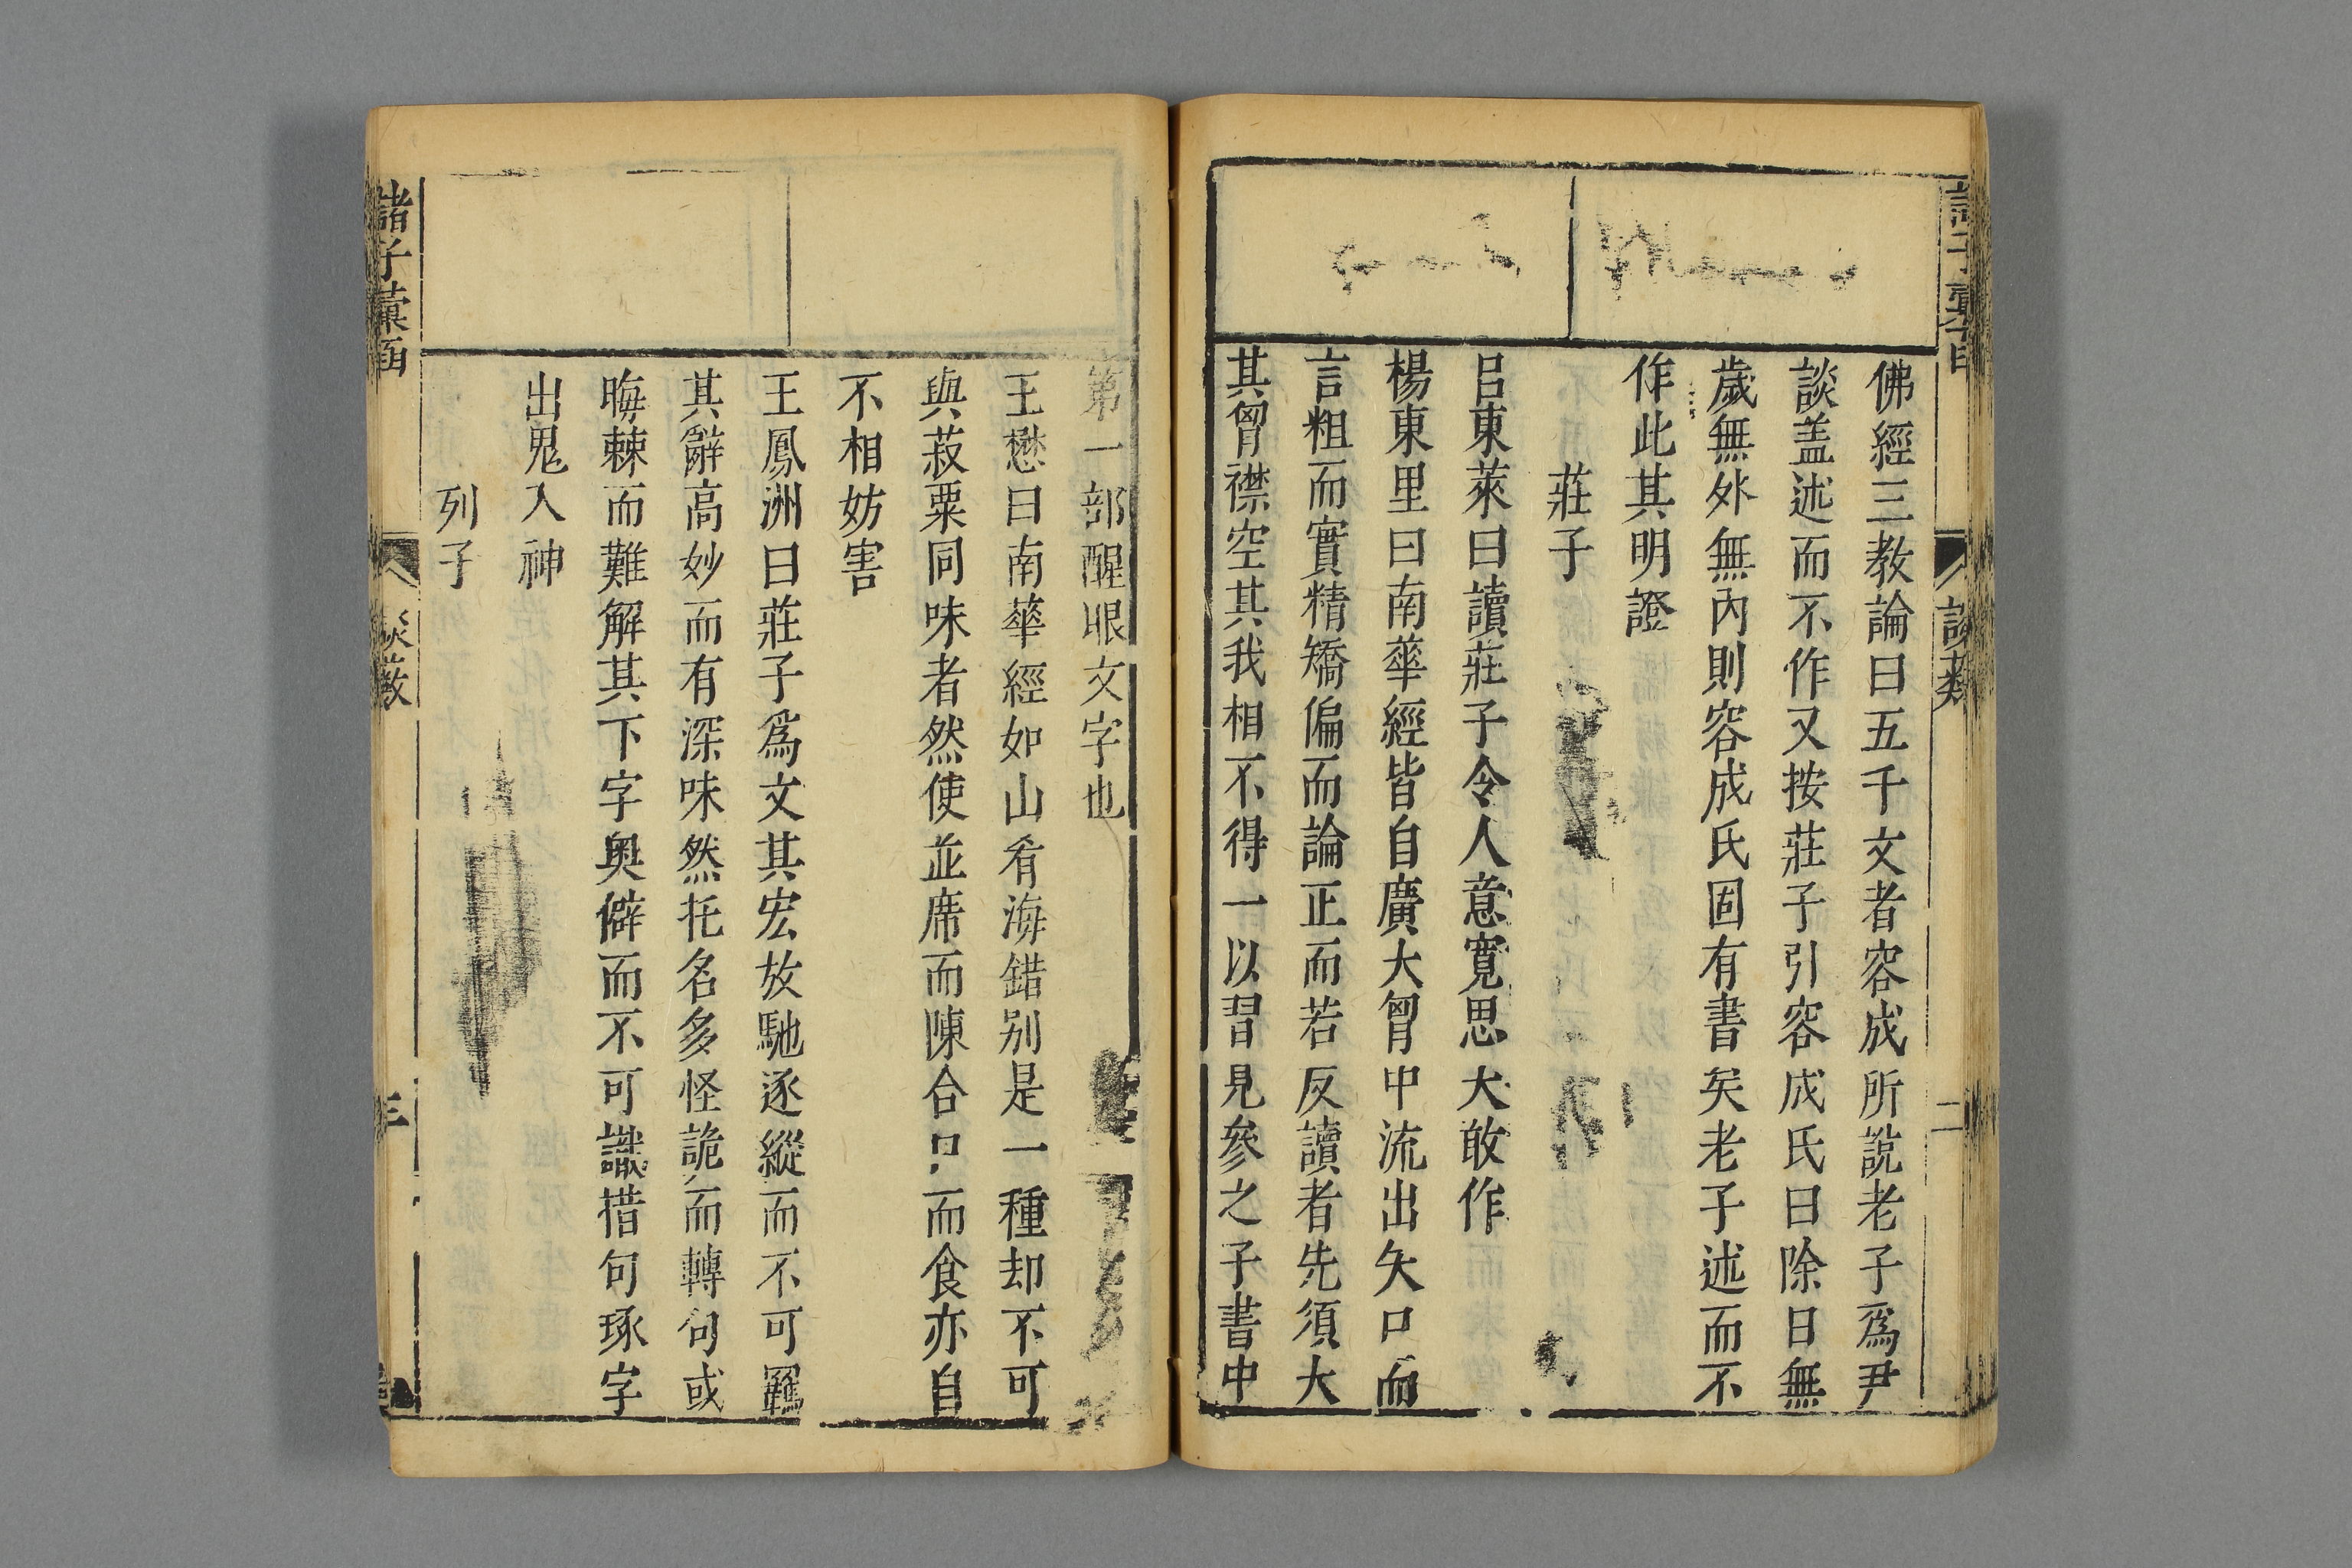 佛經三教論曰五千文者容成所說老子爲尹
談盖述而不作又按莊子引容成氏曰除日無
歲無外無內則容成氏固有書矣老子述而不
作此其明證
莊子
呂東萊曰讀莊子令人意寬思大敢作
楊東里曰南華經皆自廣大胷中流出矢口而
言粗而實精矯偏而論正而若反讀者先須大
其胷襟空其我相不得一以習見參之子書中
第一部醒眼文字也
王懋曰南華經如山肴海錯别是一種却不可
與菽粟同味者然使並席而陳合口而食亦自
不相妨害
王鳳洲曰莊子爲文其宏放馳逐縱而不可羈
其辭高妙而有深味然托名多怪詭而轉句或
晦棘而難解其下字奥僻而不可識措句琢字
出鬼入神
列子
諸子彙函
談藪
三
二